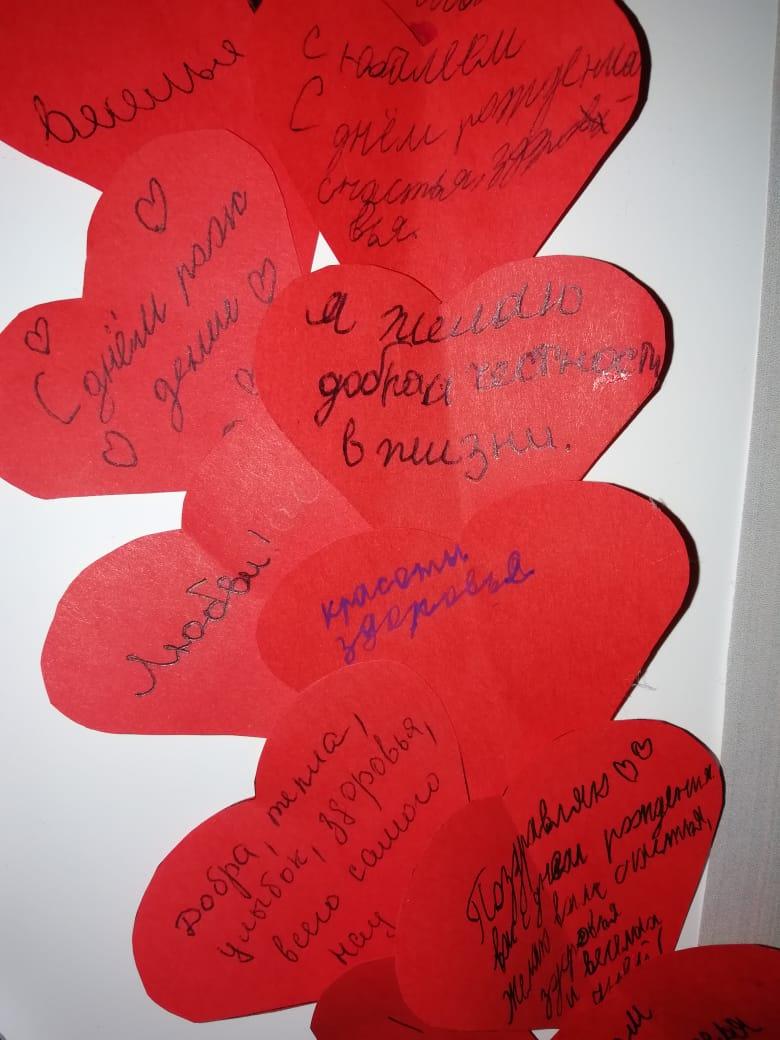 веселья
с юбилеем
С днём рождения
счастья, здоровь
вья.
С днём рож
дение
Я желаю
добрай честности
в жизни.
Любви!
красоты
здоровья
Добра, тепла,
улыбок, здоровья,
всего самого
наи
Поздравляю
вас с днём рождения.
желаю вам счастья,
здоровья
и веселья